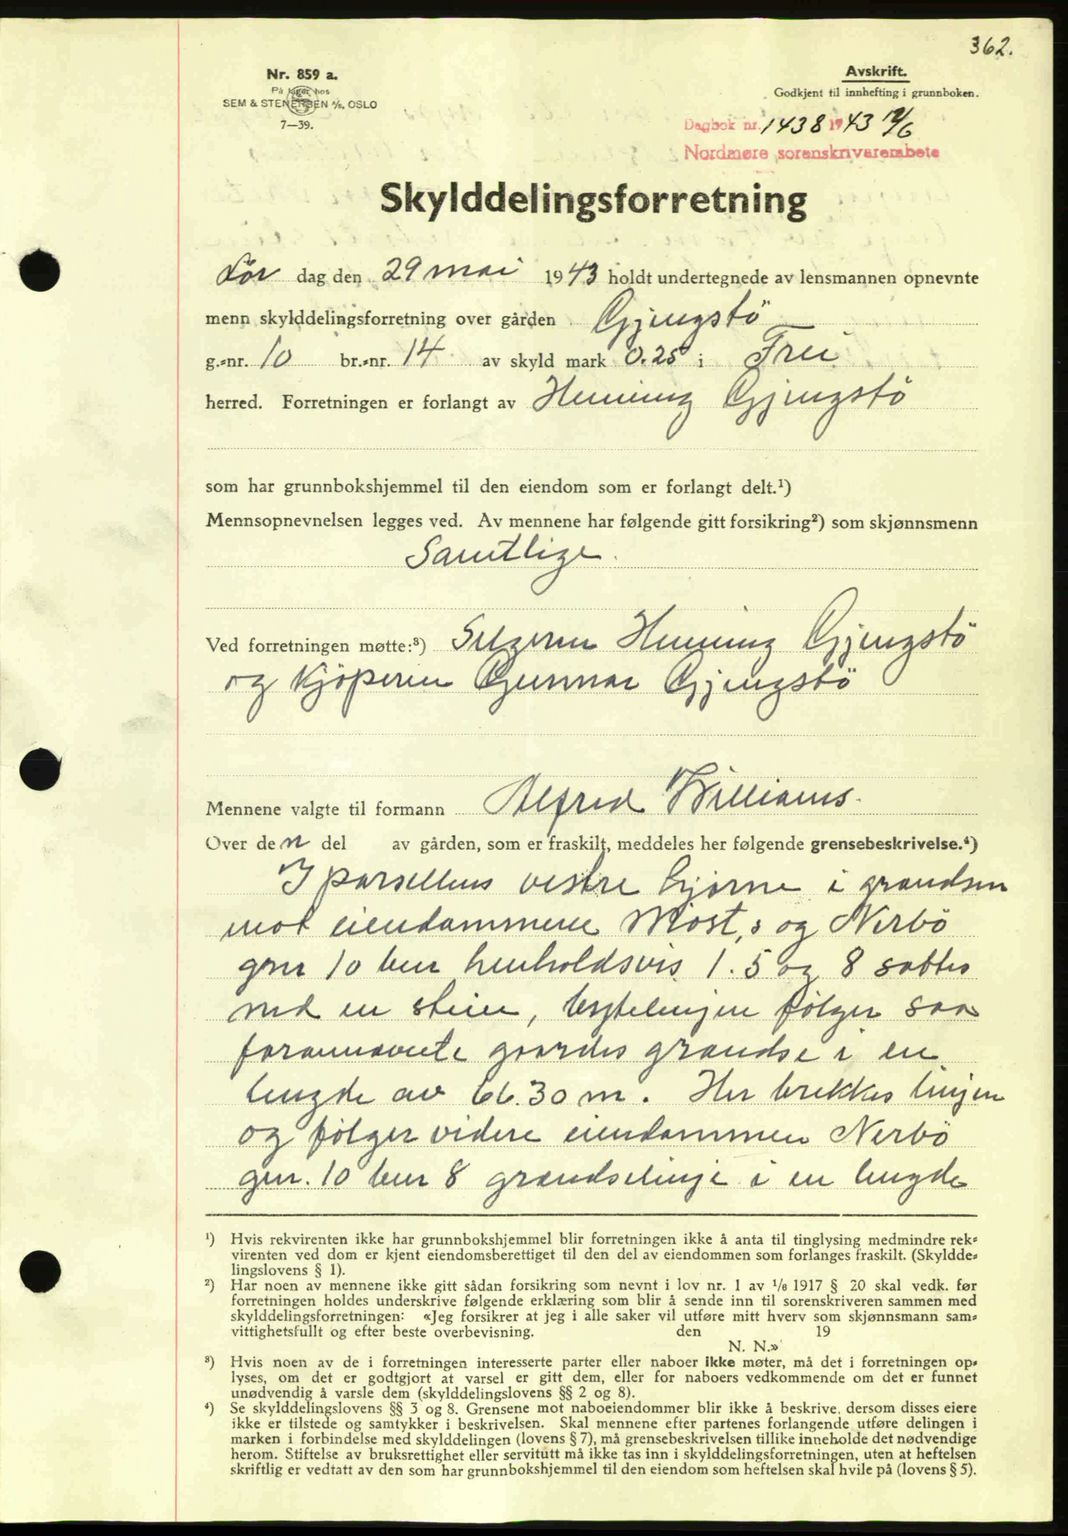 362.
Nr. 859 a.
På lager hos
SEM & STENERSEN A/S, OSLO
7—39.
Avskrift.
Godkjent til innhefting i grunnboken.
Dagbok nr. 1438 1943 12/6
Nordmøre sorenskrivarembete
Skylddelingsforretning
Lør dag den 29 mai 1943 holdt undertegnede av lensmannen opnevnte
menn skylddelingsforretning over gården Gjengstö
g.-nr. 10 br.-nr. 14 av skyld mark 0.25 i Frei
herred. Forretningen er forlangt av Henning Gjengstö
som har grunnbokshjemmel til den eiendom som er forlangt delt.¹)
Mennsopnevnelsen legges ved. Av mennene har følgende gitt forsikring²) som skjønnsmenn
Samtlige.
Ved forretningen møtte:³) Selgeren Henning Gjengstö
og Kjöperen Gunnar Gjengstö
Mennene valgte til formann Alfred Williams.
Over den del av gården, som er fraskilt, meddeles her følgende grensebeskrivelse.⁴)
I parsellens vestre hjørne i grændsen
mot eiendammene og Nerbö
gnr 10 bnr henholdsvis 1. 5 og 8 sattes
ned en stein, bytelinjen følger saa
forannævnte gaardes grændse i en
lengde av 66.30 m. Her brekkes linjen
og følger videre eiendammen Nerbö
gnr. 10 bnr 8 grændselinje i en lengde
¹) Hvis rekvirenten ikke har grunnbokshjemmel blir forretningen ikke å anta til tinglysing medmindre rek-
virenten ved dom er kjent eiendomsberettiget til den del av eiendommen som forlanges fraskilt. (Skyldde-
lingslovens § 1).
²) Har noen av mennene ikke gitt sådan forsikring som nevnt i lov nr. 1 av 1/6 1917 § 20 skal vedk. før
forretningen holdes underskrive følgende erklæring som blir å sende inn til sorenskriveren sammen med
skylddelingsforretningen: «Jeg forsikrer at jeg i alle saker vil utføre mitt hverv som skjønnsmann sam-
vittighetsfullt og efter beste overbevisning. den 19
N. N.»
³) Hvis noen av de i forretningen interesserte parter eller naboer ikke møter, må det i forretningen op-
lyses, om det er godtgjort at varsel er gitt dem, eller for naboers vedkommende om det er funnet
unødvendig å varsle dem (skylddelingslovens §§ 2 og 8).
⁴) Se skylddelingslovens §§ 3 og 8. Grensene mot naboeiendommer blir ikke å beskrive, dersom disses eiere
ikke er tilstede og samtykker i beskrivelsen. Skal mennene efter partenes forlangende utføre delingen i
marken i forbindelse med skylddelingen (lovens § 7), må grensebeskrivelsen tillike inneholde det nødvendige
herom. Stiftelse av bruksrettighet eller servitutt må ikke tas inn i skylddelingsforretningen, uten at heftelsen
skriftlig er vedtatt av den som har grunnbokshjemmel til den eiendom som heftelsen skal hvile på (lovens § 5).